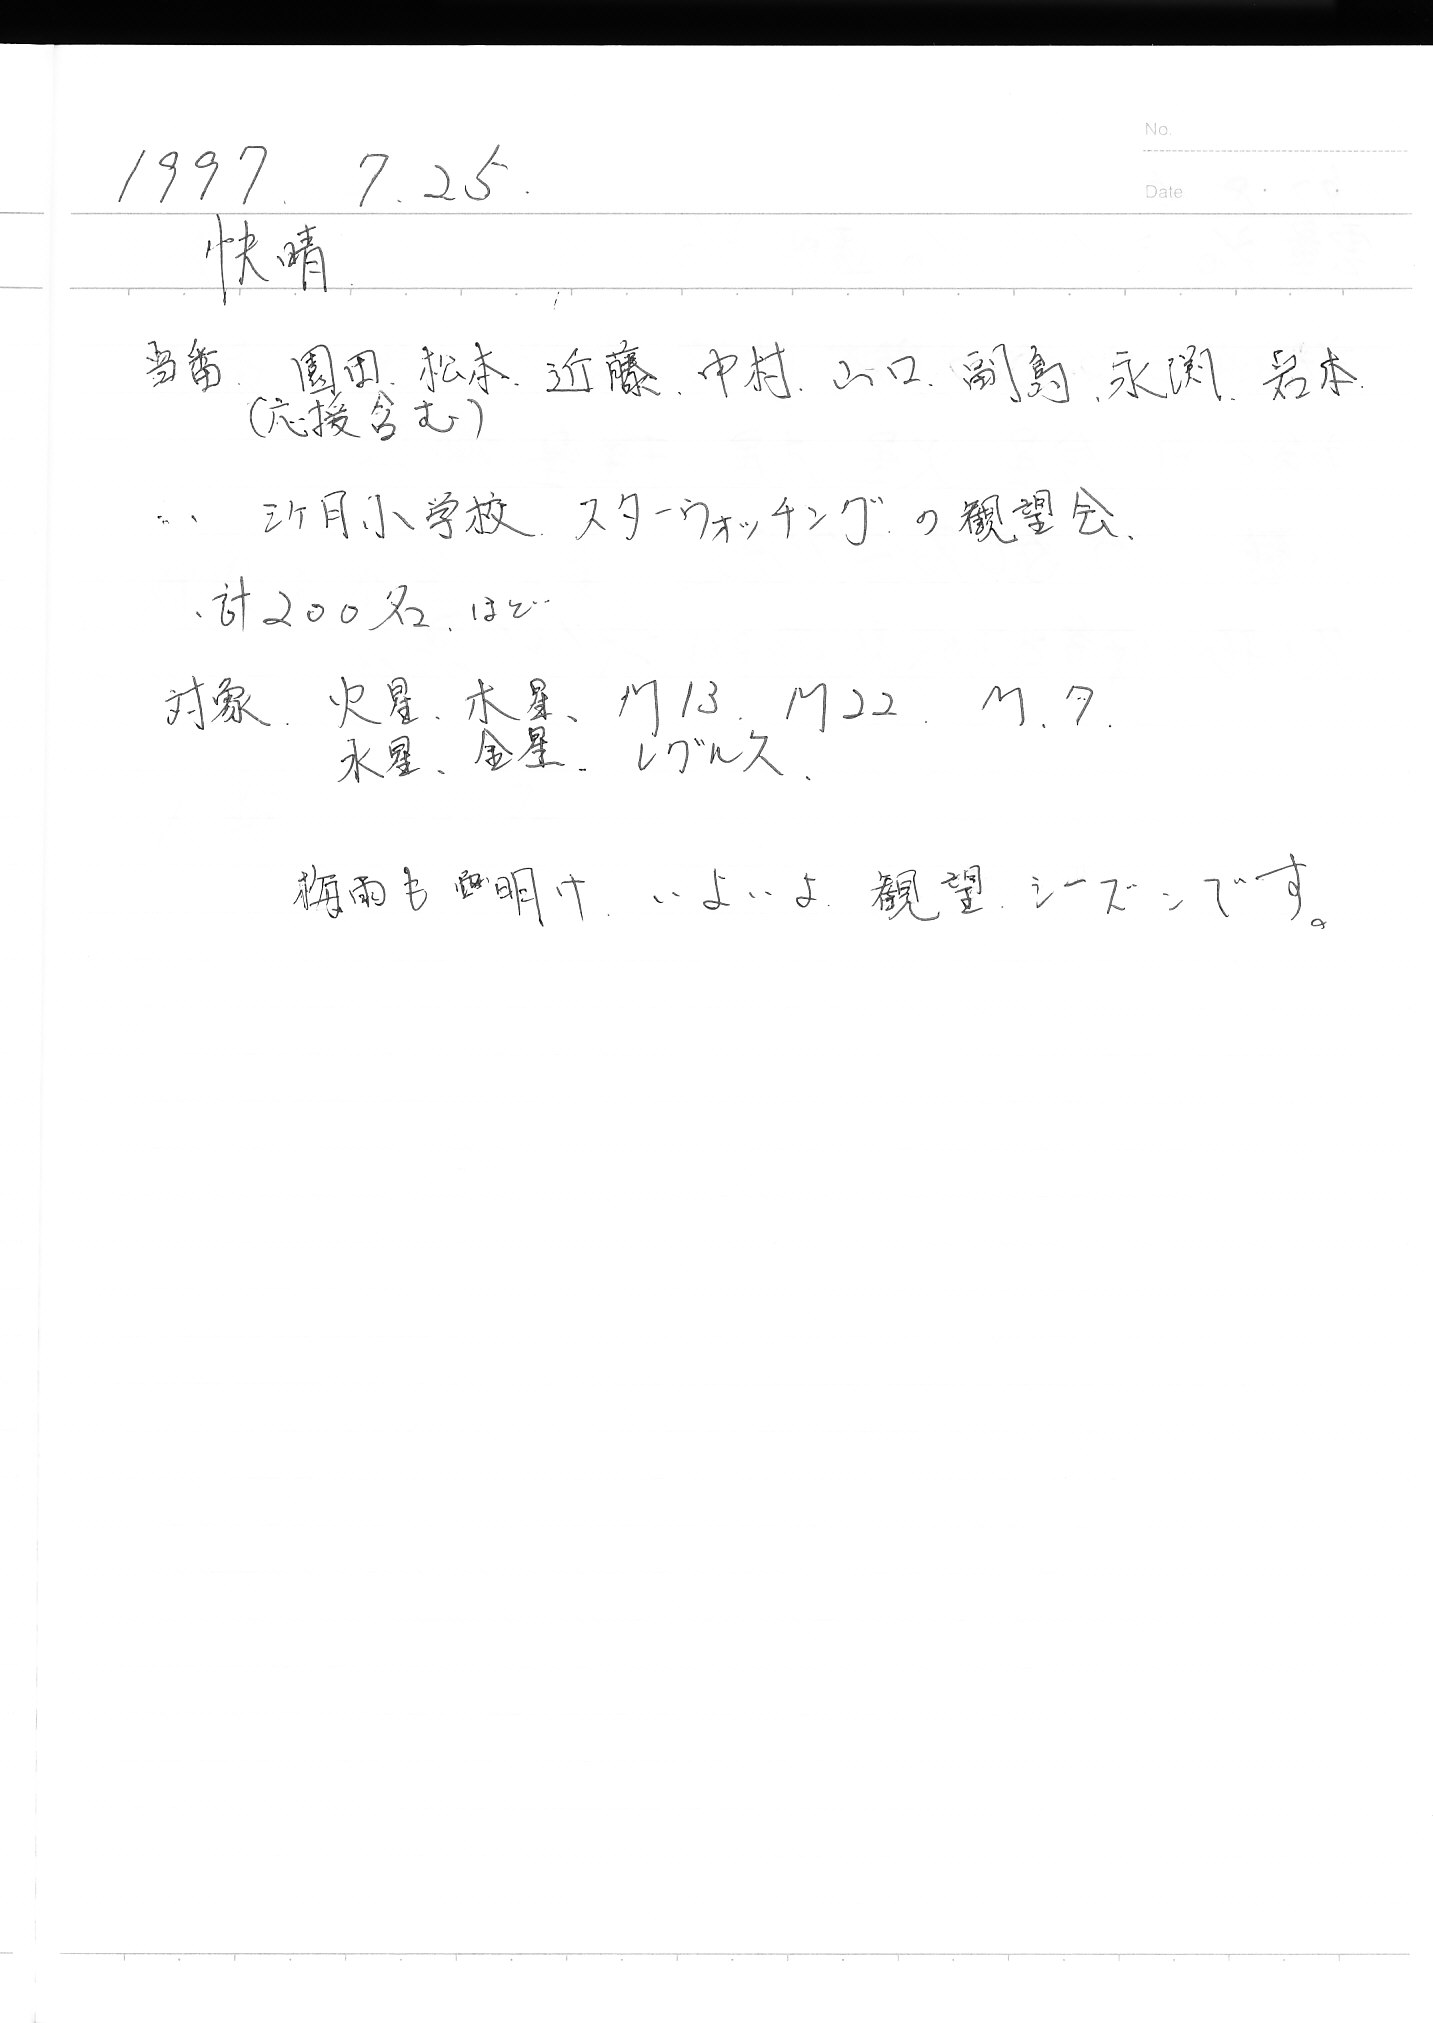 No.
1997. 7.25.
Date
快晴.
当番. 園田、松本、近藤、中村、山口、副島、永渕、岩本.
(応援含む)
三ヶ月小学校 スターウォッチングの観望会、
、計200名、ほど
対象. 火星、木星、M13. M22. M.7.
水星、金星、レグルス、
梅雨も明け、いよいよ観望シーズンです。